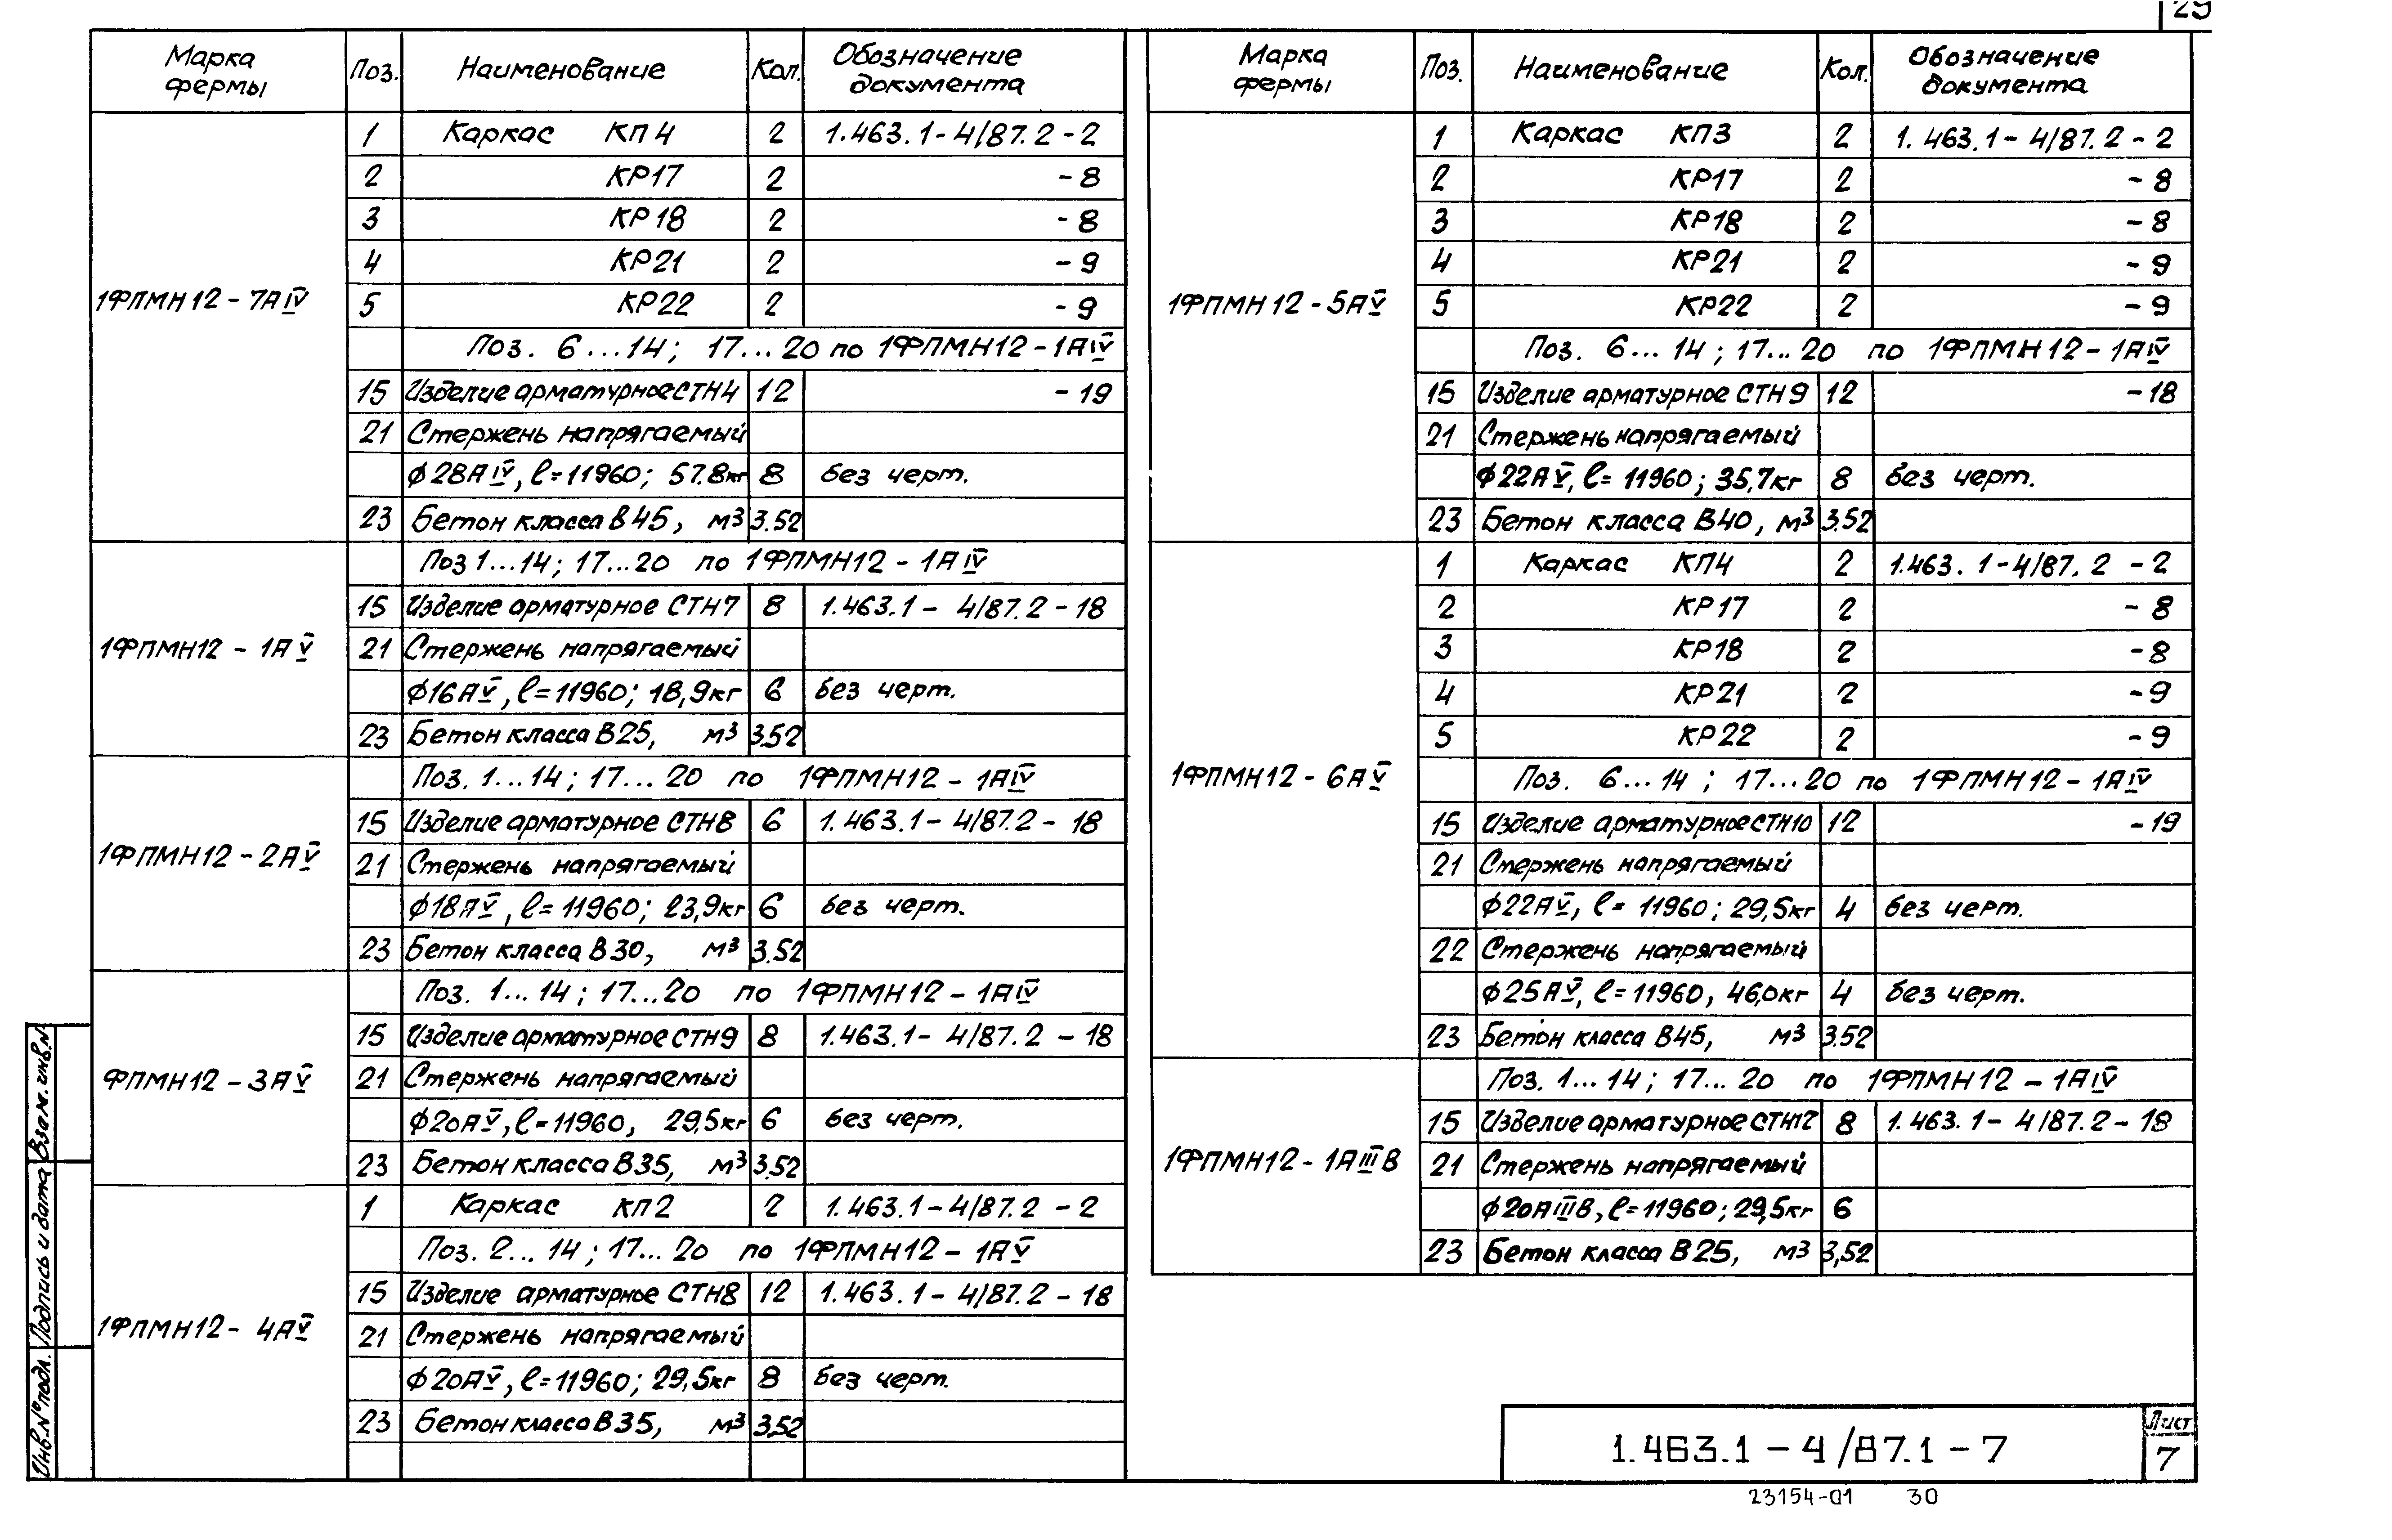 29
Марка фермы | Поз. | Наименование | Кол. | Обозначение документа
1ФПМН12-7АIV
1 | Каркас КП4 | 2 | 1.463.1-4/87.2-2
2 | КР17 | 2 | -8
3 | КР18 | 2 | -8
4 | КР21 | 2 | -9
5 | КР22 | 2 | -9
Поз. 6...14; 17...20 по 1ФПМН12-1АIV
15 | Изделие арматурное СТН4 | 12 | -19
21 | Стержень напрягаемый
ф28АIV, ℓ=11960; 57.8кг | 8 | без черт.
23 | Бетон класса В45, м3 | 3.52
1ФПМН12-1АV
Поз 1...14; 17...20 по 1ФПМН12-1АIV
15 | Изделие арматурное СТН7 | 8 | 1.463.1-4/87.2-18
21 | Стержень напрягаемый
ф16АV, ℓ=11960; 18,9кг | 6 | без черт.
23 | Бетон класса В25, м3 | 3.52
1ФПМН12-2АV
Поз. 1...14; 17...20 по 1ФПМН12-1АIV
15 | Изделие арматурное СТН8 | 6 | 1.463.1-4/87.2-18
21 | Стержень напрягаемый
ф18АV, ℓ=11960; 23,9кг | 6 | без черт.
23 | Бетон класса В30, м3 | 3.52
ФПМН12-3АV
Поз. 1...14; 17...20 по 1ФПМН12-1АIV
15 | Изделие арматурное СТН9 | 8 | 1.463.1-4/87.2-18
21 | Стержень напрягаемый
ф20АV, ℓ=11960, 29,5кг | 6 | без черт.
23 | Бетон класса В35, м3 | 3.52
1ФПМН12-4АV
1 | Каркас КП2 | 2 | 1.463.1-4/87.2-2
Поз. 2...14; 17...20 по 1ФПМН12-1АV
15 | Изделие арматурное СТН8 | 12 | 1.463.1-4/87.2-18
21 | Стержень напрягаемый
ф20АV, ℓ=11960; 29,5кг | 8 | без черт.
23 | Бетон класса В35, м3 | 3,52
Марка фермы | Поз. | Наименование | Кол. | Обозначение документа
1ФПМН12-5АV
1 | Каркас КП3 | 2 | 1.463.1-4/87.2-2
2 | КР17 | 2 | -8
3 | КР18 | 2 | -8
4 | КР21 | 2 | -9
5 | КР22 | 2 | -9
Поз. 6...14; 17...20 по 1ФПМН12-1АIV
15 | Изделие арматурное СТН9 | 12 | -18
21 | Стержень напрягаемый
ф22АV, ℓ=11960; 35,7кг | 8 | без черт.
23 | Бетон класса В40, м3 | 3.52
1ФПМН12-6АV
1 | Каркас КП4 | 2 | 1.463.1-4/87.2-2
2 | КР17 | 2 | -8
3 | КР18 | 2 | -8
4 | КР21 | 2 | -9
5 | КР22 | 2 | -9
Поз. 6...14; 17...20 по 1ФПМН12-1АIV
15 | Изделие арматурное СТН10 | 12 | -19
21 | Стержень напрягаемый
ф22АV, ℓ=11960; 29,5кг | 4 | без черт.
22 | Стержень напрягаемый
ф25АV, ℓ=11960, 46,0кг | 4 | без черт.
23 | Бетон класса В45, м3 | 3.52
1ФПМН12-1АIIIВ
Поз. 1...14; 17...20 по 1ФПМН12-1АIV
15 | Изделие арматурное СТН12 | 8 | 1.463.1-4/87.2-18
21 | Стержень напрягаемый
ф20АIIIВ, ℓ=11960; 29,5кг | 6
23 | Бетон класса В25, м3 | 3,52
Взам. инв.N
Подпись и дата
Инв.№ подл.
1.463.1-4/87.1-7
Лист
7
23154-01 30